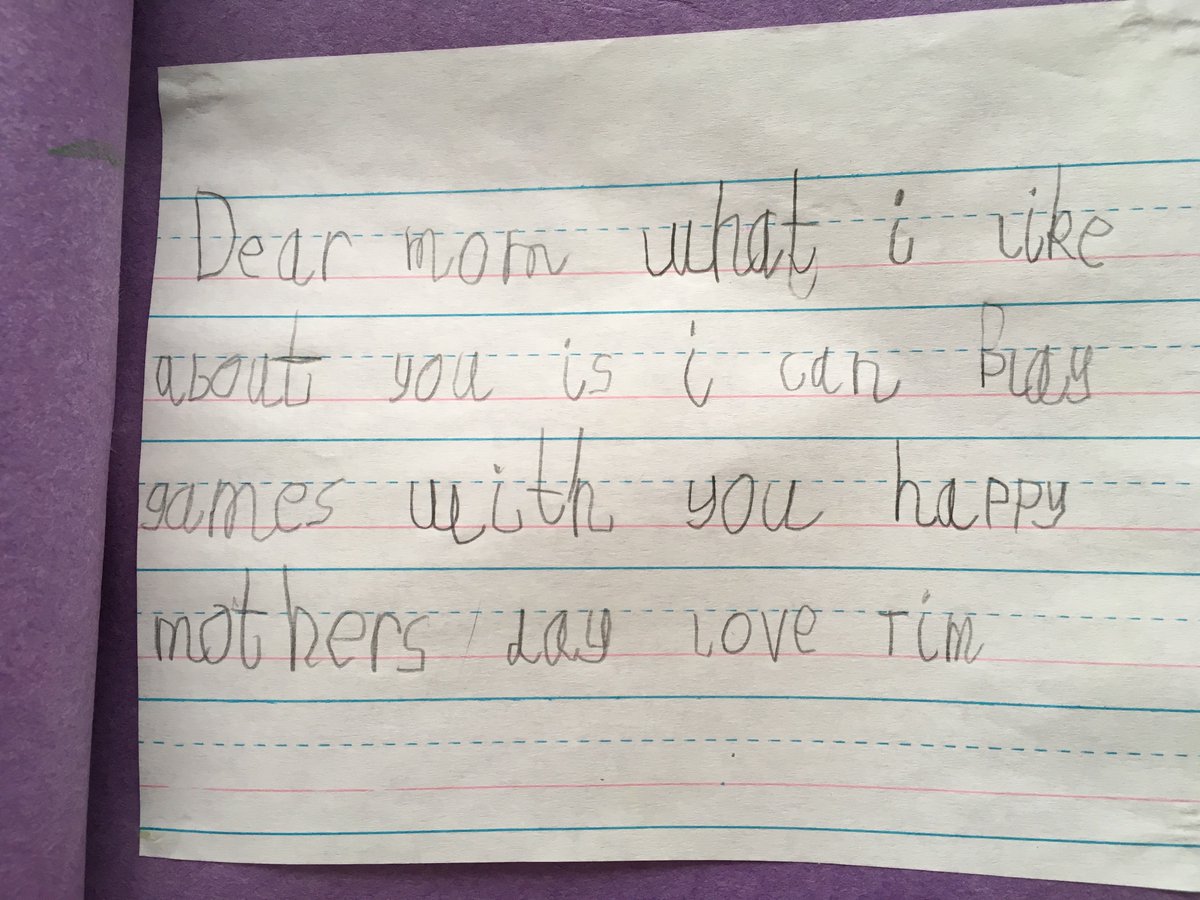 Dear mom what i like
about you is i can Play
games with you happy
mothers day love Tim